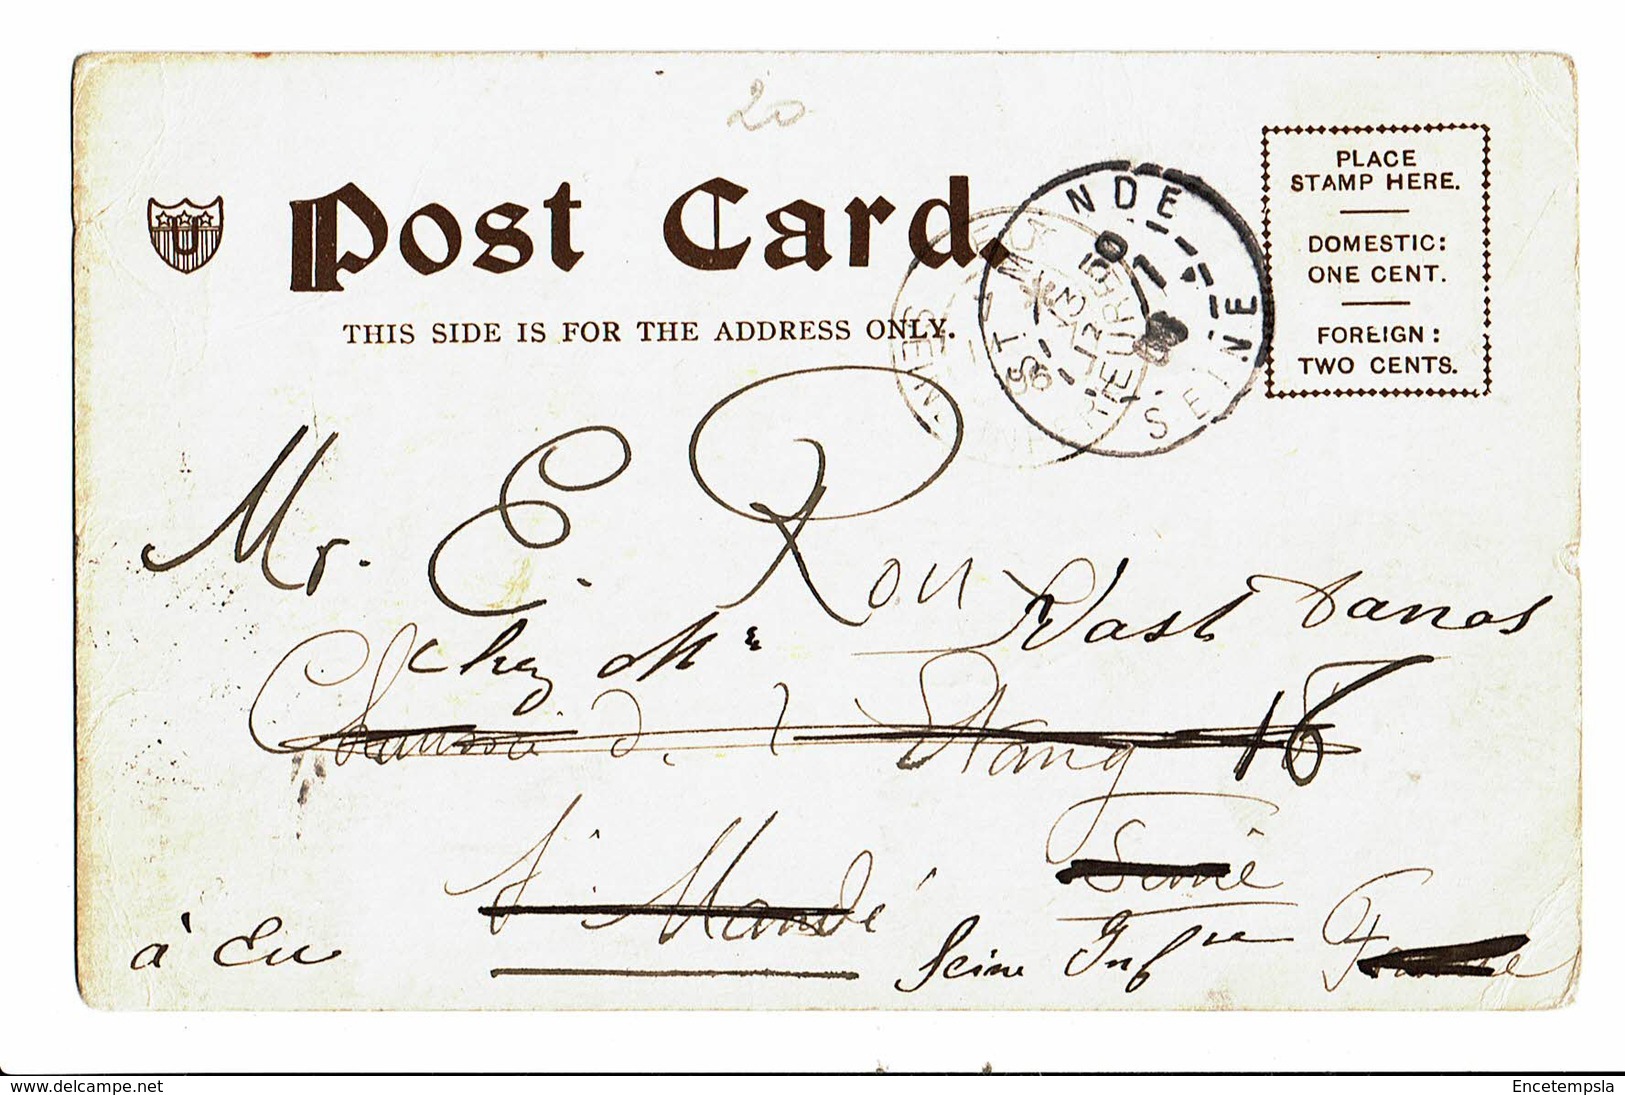 20
U
Post Card.
PLACE
STAMP HERE.
DOMESTIC:
ONE CENT.
FOREIGN:
TWO CENTS.
THIS SIDE IS FOR THE ADDRESS ONLY.
ST-MANDE
SEINE
Mr. E. Rou
chez Mr
Chaussée d. l'Etang 18
St. Mandé Seine
à Eu Seine Infre France
www.delcampe.net
Encetempsla